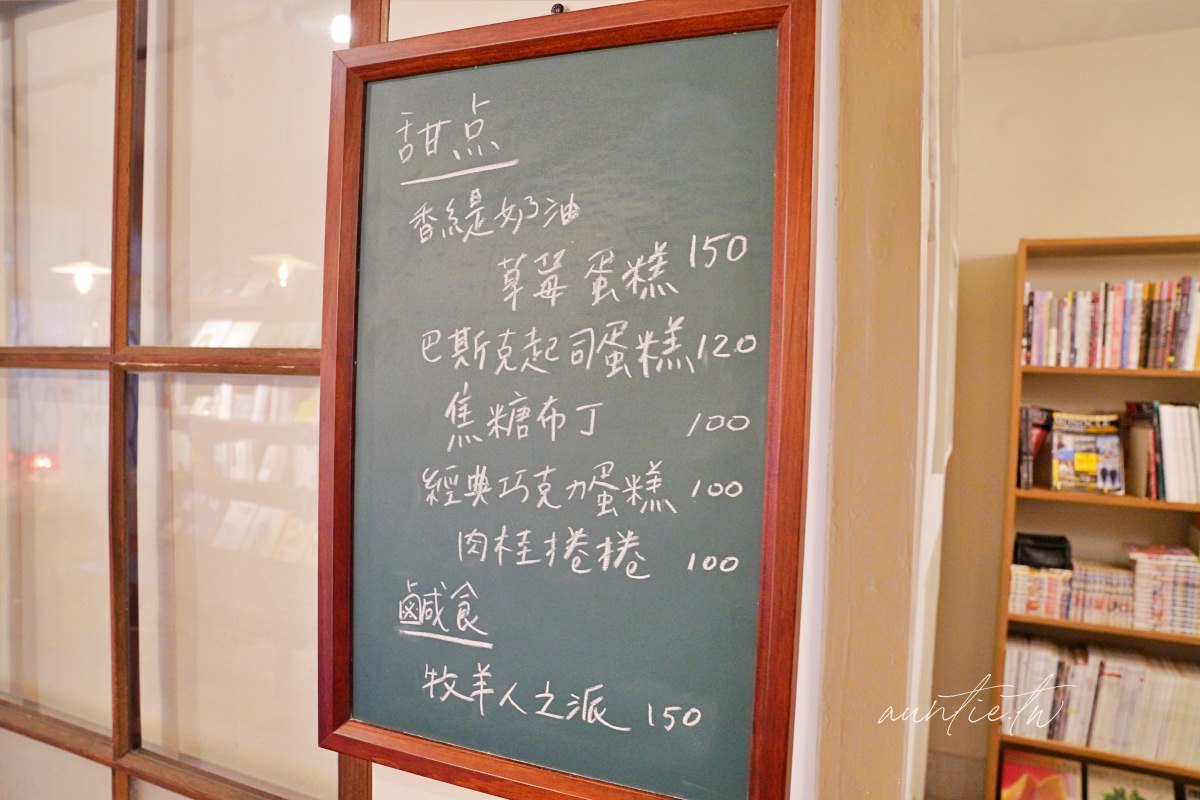 甜点
香緹奶油
草莓蛋糕 150
巴斯克起司蛋糕 120
焦糖布丁 100
經典巧克力蛋糕 100
肉桂捲捲 100
鹹食
牧羊人之派 150
MONOCLE
auntie.tw